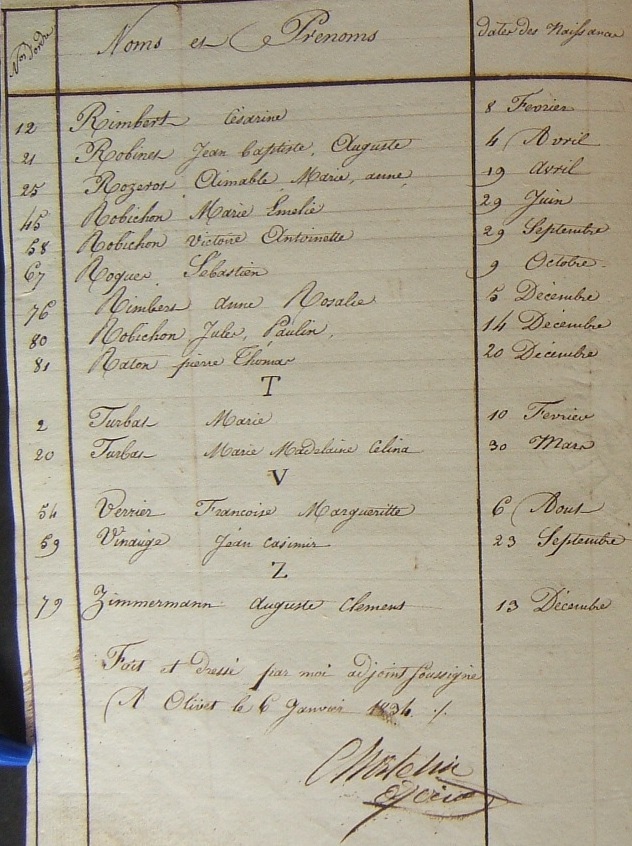 Nos d'ordre Noms et Prénoms dates des Naissance
12 Rimbert Césarine 8 Fevrier
21 Robinet Jean baptiste, Auguste 4 Avril
25 Rozerot Aimable, Marie, anne, 19 avril
45 Robichon Marie Emelie 29 Juin
58 Robichon victoire Antoinette 29 Septembre
67 Roguer Sébastien 9 Octobre
76 Rimbert Anne Rosalie 5 Décembre
80 Robichon Jules, Paulin, 14 Décembre
81 Raton pierre Thomas 20 Décembre
T
2 Turbat Marie 10 Fevrier
20 Turbat Marie Madelaine Celina 30 Mars
V
54 Verrier Francoise Margueritte 6 Aout
59 Vinauge Jean Casimir 23 Septembre
Z
79 Zimmermann auguste Clement 13 Décembre
Fait et dressé par moi adjoint soussigné
A Olivet le 6 Janvier 1834 ./.